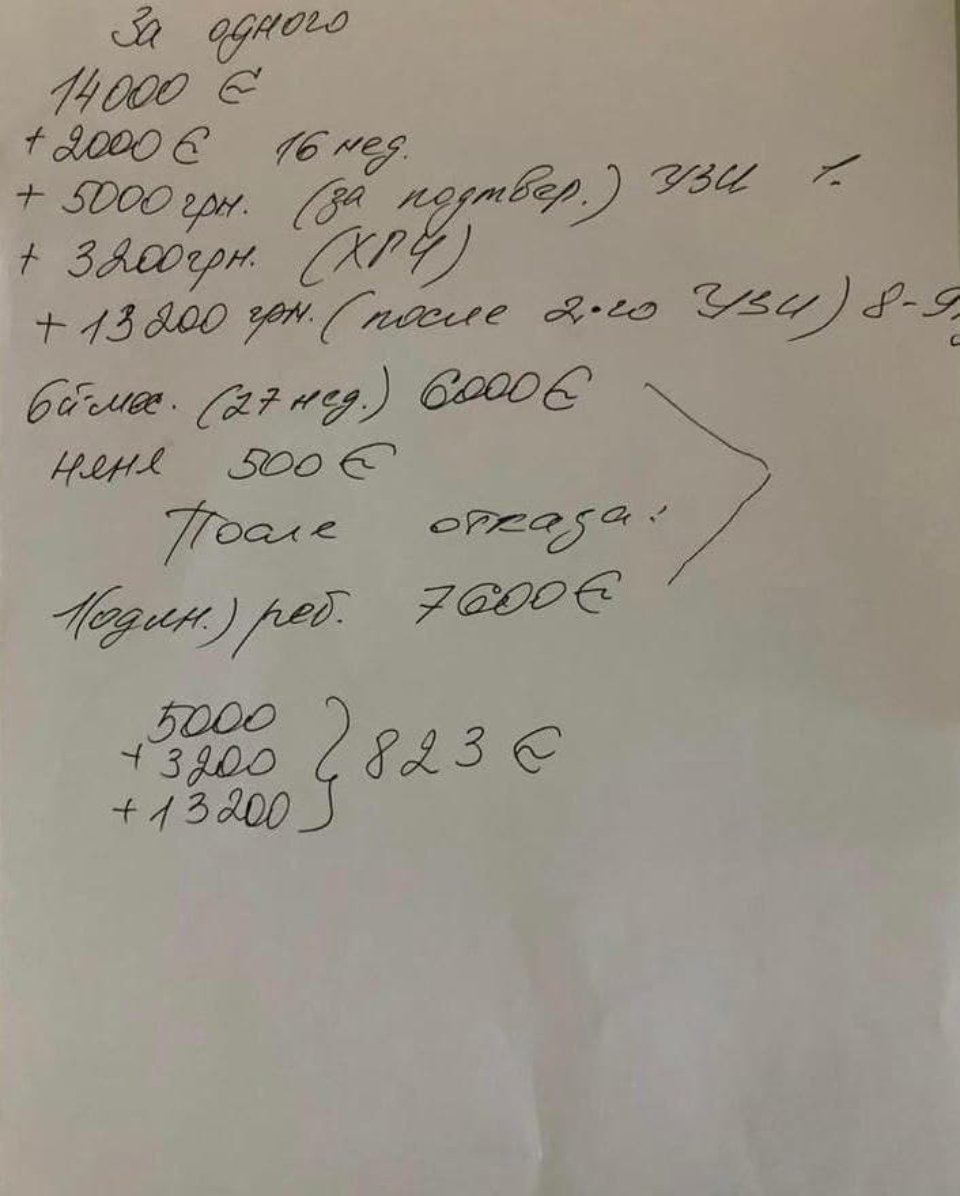 За одного
14000 €
+ 2000 € 16 нед.
+ 5000 грн. (за подтвер.) УЗИ 1.
+ 3200 грн. (ХГЧ)
+ 13200 грн. (после 2-го УЗИ) 8-9
6й мес. (27 нед.) 6000 €
няня 500 €
После отказа:
1(один.) реб. 7600 €
5000
+ 3200 } 823 €
+ 13200